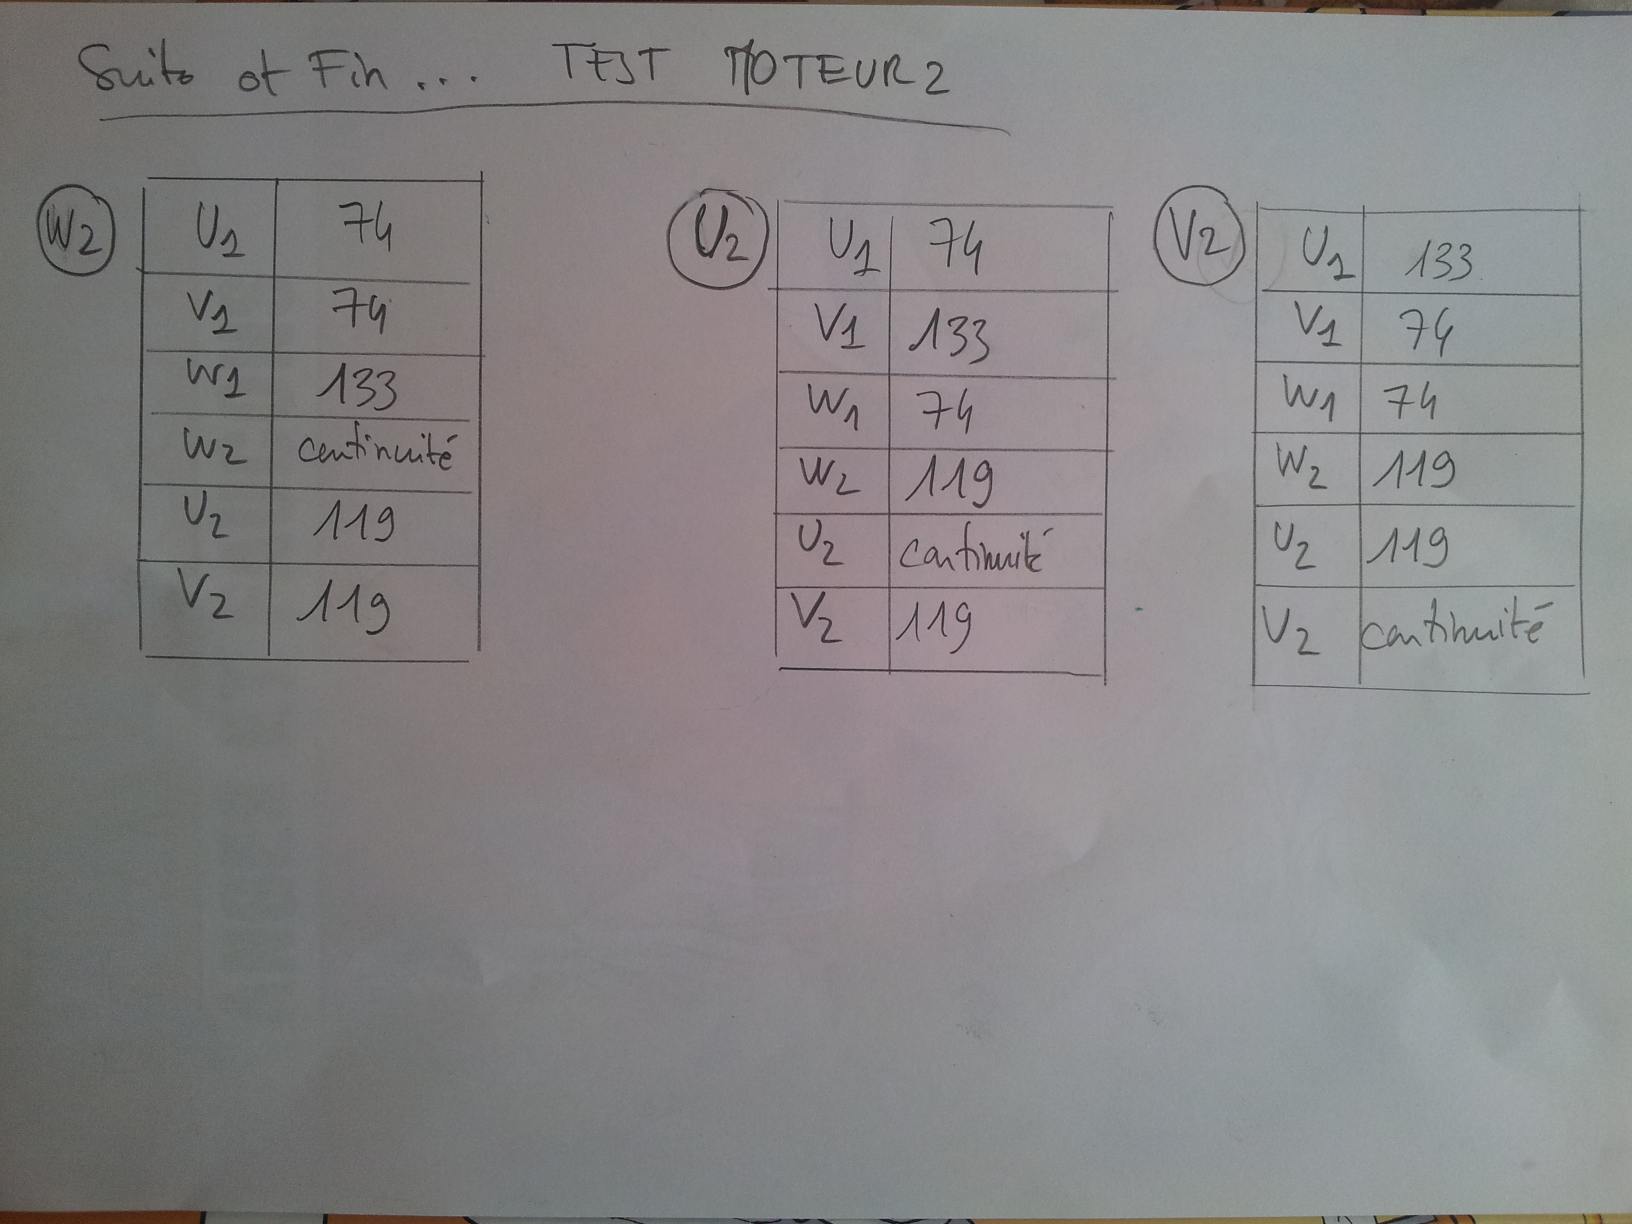 Suite et Fin ... TEST MOTEUR 2
W2
U1 74
V1 74
W1 133
W2 continuité
U2 119
V2 119
U2
U1 74
V1 133
W1 74
W2 119
U2 continuité
V2 119
V2
U1 133
V1 74
W1 74
W2 119
U2 119
V2 continuité